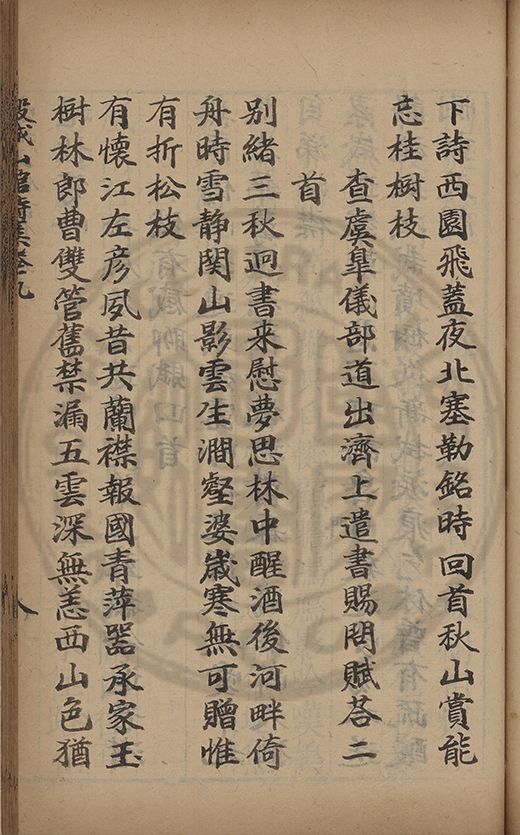 下詩西園飛蓋夜北塞勒銘時回首秋山賞能
忘桂樹枝
查虞臯儀部道出濟上遣書賜問賦荅二
首
別緒三秋迥書来慰夢思林中醒酒後河畔倚
舟時雪静関山影雲生澗壑姿嵗寒無可贈惟
有折松枝
有懷江左彦夙昔共蘭襟報國青萍噐承家玉
樹林郎曹雙管舊禁漏五雲深無恙西山色猶
山館詩集卷九
八